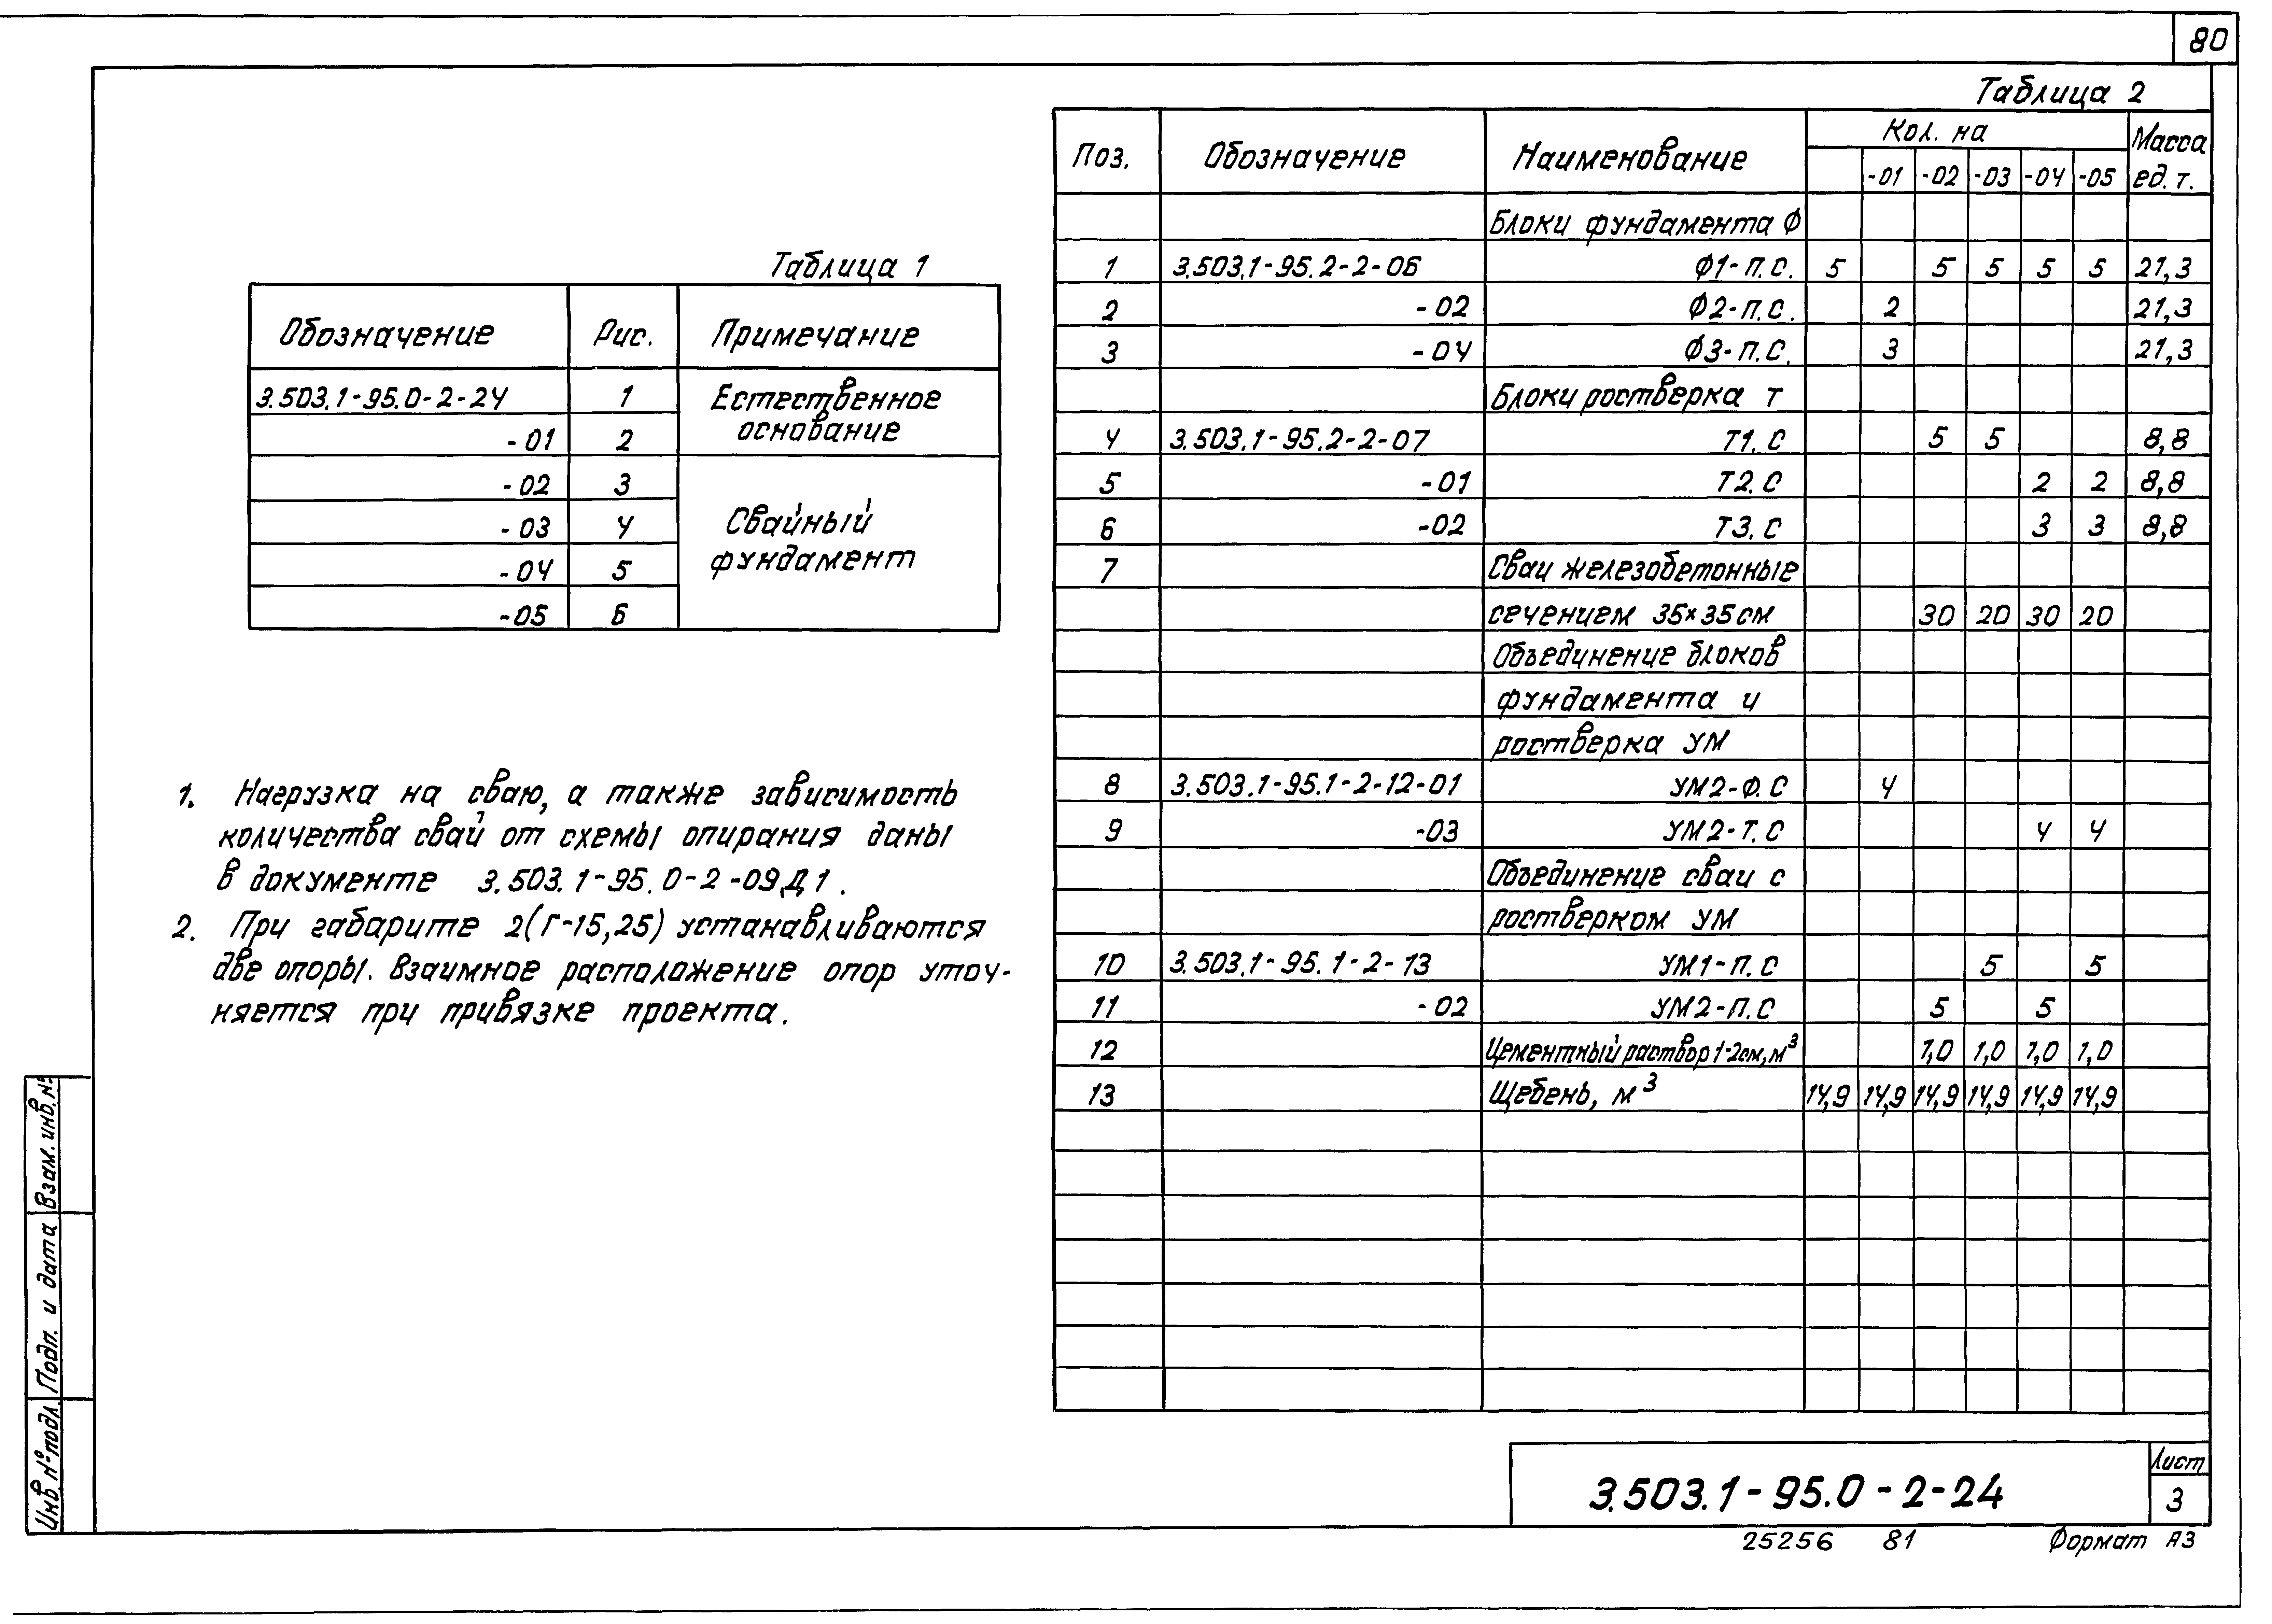 80
Таблица 1
Обозначение Рис. Примечание
3.503.1-95.0-2-24 1 Естественное
основание
-01 2
-02 3
-03 4 Свайный
фундамент
-04 5
-05 6
1. Нагрузка на сваю, а также зависимость
количества свай от схемы опирания даны
в документе 3.503.1-95.0-2-09Д1.
2. При габарите 2(Г-15,25) устанавливаются
две опоры. Взаимное расположение опор уточ-
няется при привязке проекта.
Таблица 2
Поз. Обозначение Наименование Кол. на Масса
ед. т.
-01 -02 -03 -04 -05
Блоки фундамента Ф
1 3.503.1-95.2-2-06 Ф1-п.с. 5 5 5 5 5 21,3
2 -02 Ф2-п.с. 2 21,3
3 -04 Ф3-п.с. 3 21,3
Блоки ростверка т
4 3.503.1-95.2-2-07 Т1.с 5 5 8,8
5 -01 Т2.с 2 2 8,8
6 -02 Т3.с 3 3 8,8
7 Сваи железобетонные
сечением 35×35см 30 20 30 20
Объединение блоков
фундамента и
ростверка УМ
8 3.503.1-95.1-2-12-01 УМ2-Ф.С 4
9 -03 УМ2-Т.С 4 4
Объединение сваи с
ростверком УМ
10 3.503.1-95.1-2-13 УМ1-П.С 5 5
11 -02 УМ2-П.С 5 5
12 Цементный раствор 1-2см, м³ 1,0 1,0 1,0 1,0
13 Щебень, м³ 14,9 14,9 14,9 14,9 14,9 14,9
Инв. № подл. Подп. и дата Взам. инв. №
3.503.1-95.0-2-24
Лист
3
25256 81 Формат А3